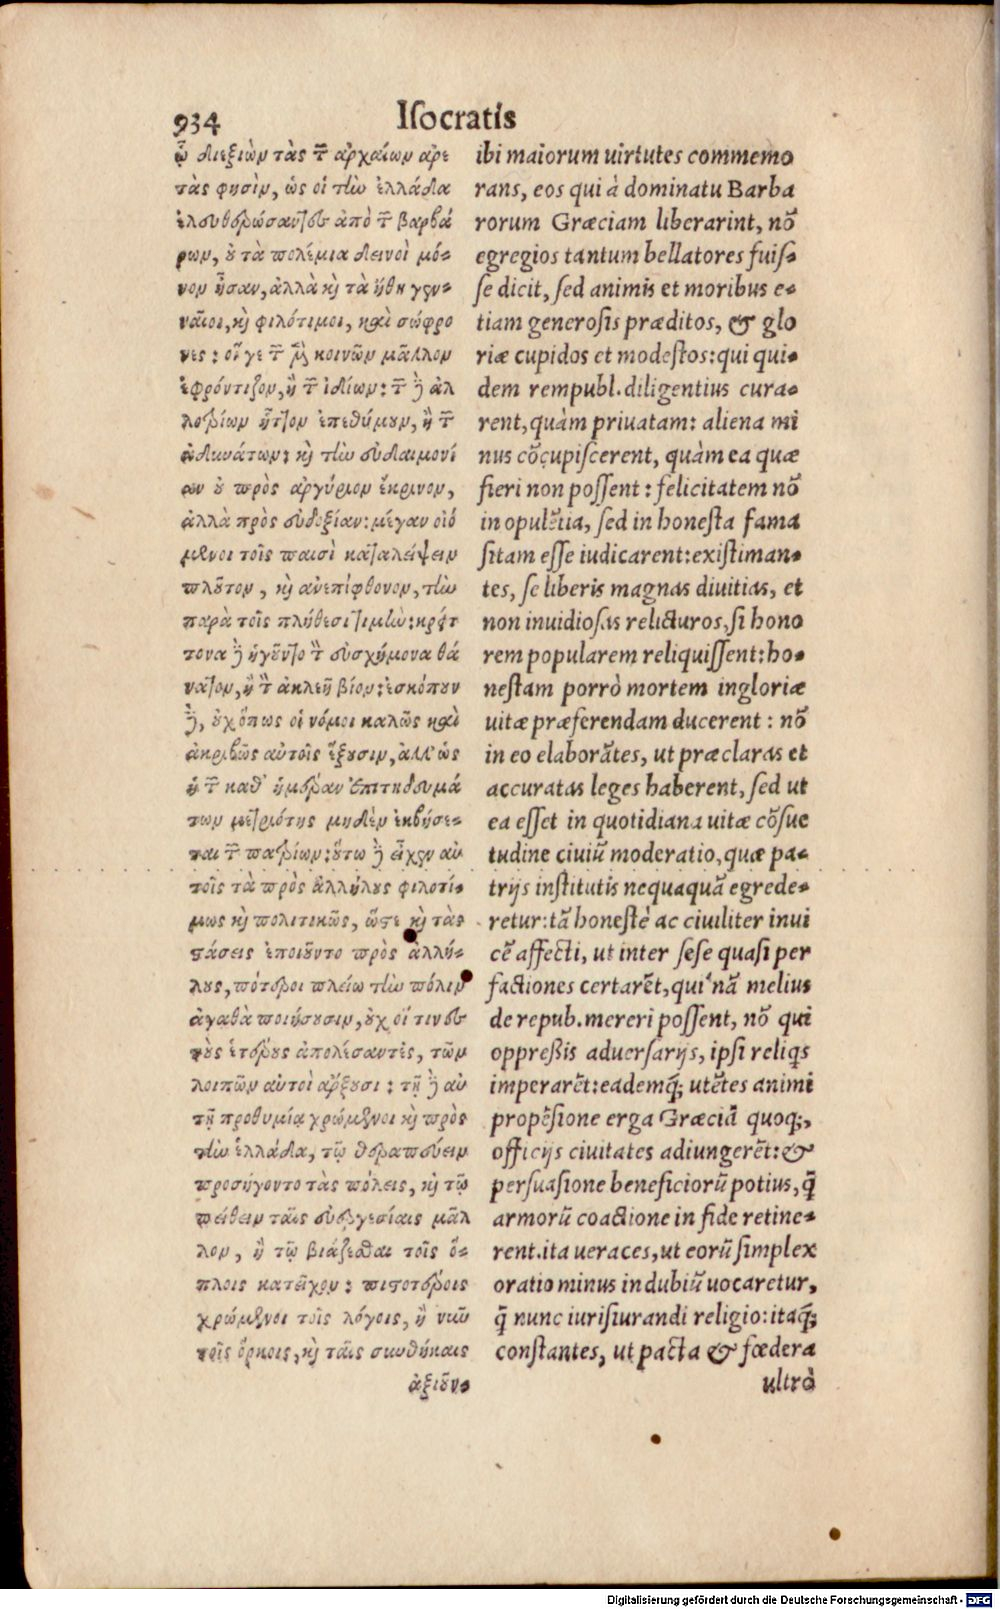 934
Iſocratis
ᾧ διεξιὼν τὰς τ῀ ἀρχαίων ἀρε
τὰς φησὶν, ὡς οἱ τὴν ἑλλάδα
ἐλευθερώσαντες ἀπὸ τ῀ βαρβά
ρων, ȣ τὰ πολέμια δεινοὶ μό-
νον ἦσαν, ἀλλὰ κὶ τὰ ἤθη γεν-
ναῖοι, κὶ φιλότιμοι, καὶ σώφρο
νες: οἵ γε τ῀ μὲν κοινῶν μᾶλλον
ἐφρόντιζον, ἢ τ῀ ἰδίων: τ῀ δὲ ἀλ
λοτρίων ἧττον ἐπεθύμȣν, ἢ τ῀
ἀδυνάτων: κὶ τὴν εὐδαιμονί
αν ȣ πρὸς ἀργύριον ἔκρινον,
ἀλλὰ πρὸς εὐδοξίαν: μέγαν οἰό
μενοι τοῖς παισὶ καταλείψειν
πλȣτον, κὶ ἀνεπίφθονον, τὴν
παρὰ τοῖς πλήθεσι τιμὴν: κρείτ
τονα δὲ ἡγȣντο τ῀ εὐσχήμονα θά
νατον, ἢ τ῀ ἀκλεῆ βίον: ἐσκόπουν
δὲ, ȣχ ὅπως οἱ νόμοι καλῶς καὶ
ἀκριβῶς αὐτοῖς ἕξȣσιν, ἀλλ' ὡς
ἡ τ῀ καθ' ἡμέραν ἐπιτηδευμά
των μετριότης μηδὲν ἐκβήσε-
ται τ῀ πατρίων: ȣτω δὲ εἶχεν αὐ
τοῖς τὰ πρὸς ἀλλήλȣς φιλοτί-
μως κὶ πολιτικῶς, ὥστε κὶ τὰς
στάσεις ἐποιȣντο πρὸς ἀλλή-
λȣς, πότεροι πλείω τὴν πόλιν
ἀγαθὰ ποιήσȣσιν, ȣχ οἵ τινες
τȣς ἑτέρȣς ἀπολέσαντες, τῶν
λοιπῶν αὐτοὶ ἄρξȣσι: τῇ δὲ αὐ
τῇ προθυμίᾳ χρώμενοι κὶ πρὸς
τὴν ἑλλάδα, τῷ θεραπεύειν
προσήγοντο τὰς πόλεις, κὶ τῷ
πείθειν ταῖς εὐεργεσίαις μᾶλ
λον, ἢ τῷ βιάζεσθαι τοῖς ὅ-
πλοις κατεῖχον: πιστοτέροις
χρώμενοι τοῖς λόγοις, ἢ νῦν
τοῖς ὅρκοις, κὶ ταῖς συνθήκαις
ἀξιȣν-
ibi maiorum uirtutes commemo
rans, eos qui à dominatu Barba
rorum Græciam liberarint, nõ
egregios tantum bellatores fuiſ-
ſe dicit, ſed animis et moribus e-
tiam generoſis præditos, & glo
riæ cupidos et modeſtos: qui qui-
dem rempubl. diligentius cura-
rent, quàm priuatam: aliena mi
nus cõcupiſcerent, quàm ea quæ
fieri non poſſent: felicitatem nõ
in opulẽtia, ſed in honeſta fama
ſitam eſſe iudicarent: exiſtiman-
tes, ſe liberis magnas diuitias, et
non inuidioſas relicturos, ſi hono
rem popularem reliquiſſent: ho-
neſtam porrò mortem ingloriæ
uitæ præferendam ducerent: nõ
in eo elaborãtes, ut præclaras et
accuratas leges haberent, ſed ut
ea eſſet in quotidiana uitæ cõſue
tudine ciuiũ moderatio, quæ pa-
trijs inſtitutis nequaquã egrede-
retur: tã honeſtè ac ciuiliter inui
cẽ affecti, ut inter ſeſe quaſi per
factiones certarẽt, qui nã melius
de repub. mereri poſſent, nõ qui
oppreßis aduerſarijs, ipſi reliqs
imperarẽt: eademq́; utẽtes animi
propẽſione erga Græciã quoq;,
officijs ciuitates adiungerẽt: &
perſuaſione beneficiorũ potius, q̃
armorũ coactione in fide retine-
rent. ita ueraces, ut eorũ ſimplex
oratio minus in dubiũ uocaretur,
q̃ nunc iuriſiurandi religio: itaq́;
conſtantes, ut pacta & fœdera
ultrò
Digitalisierung gefördert durch die Deutsche Forschungsgemeinschaft - DFG